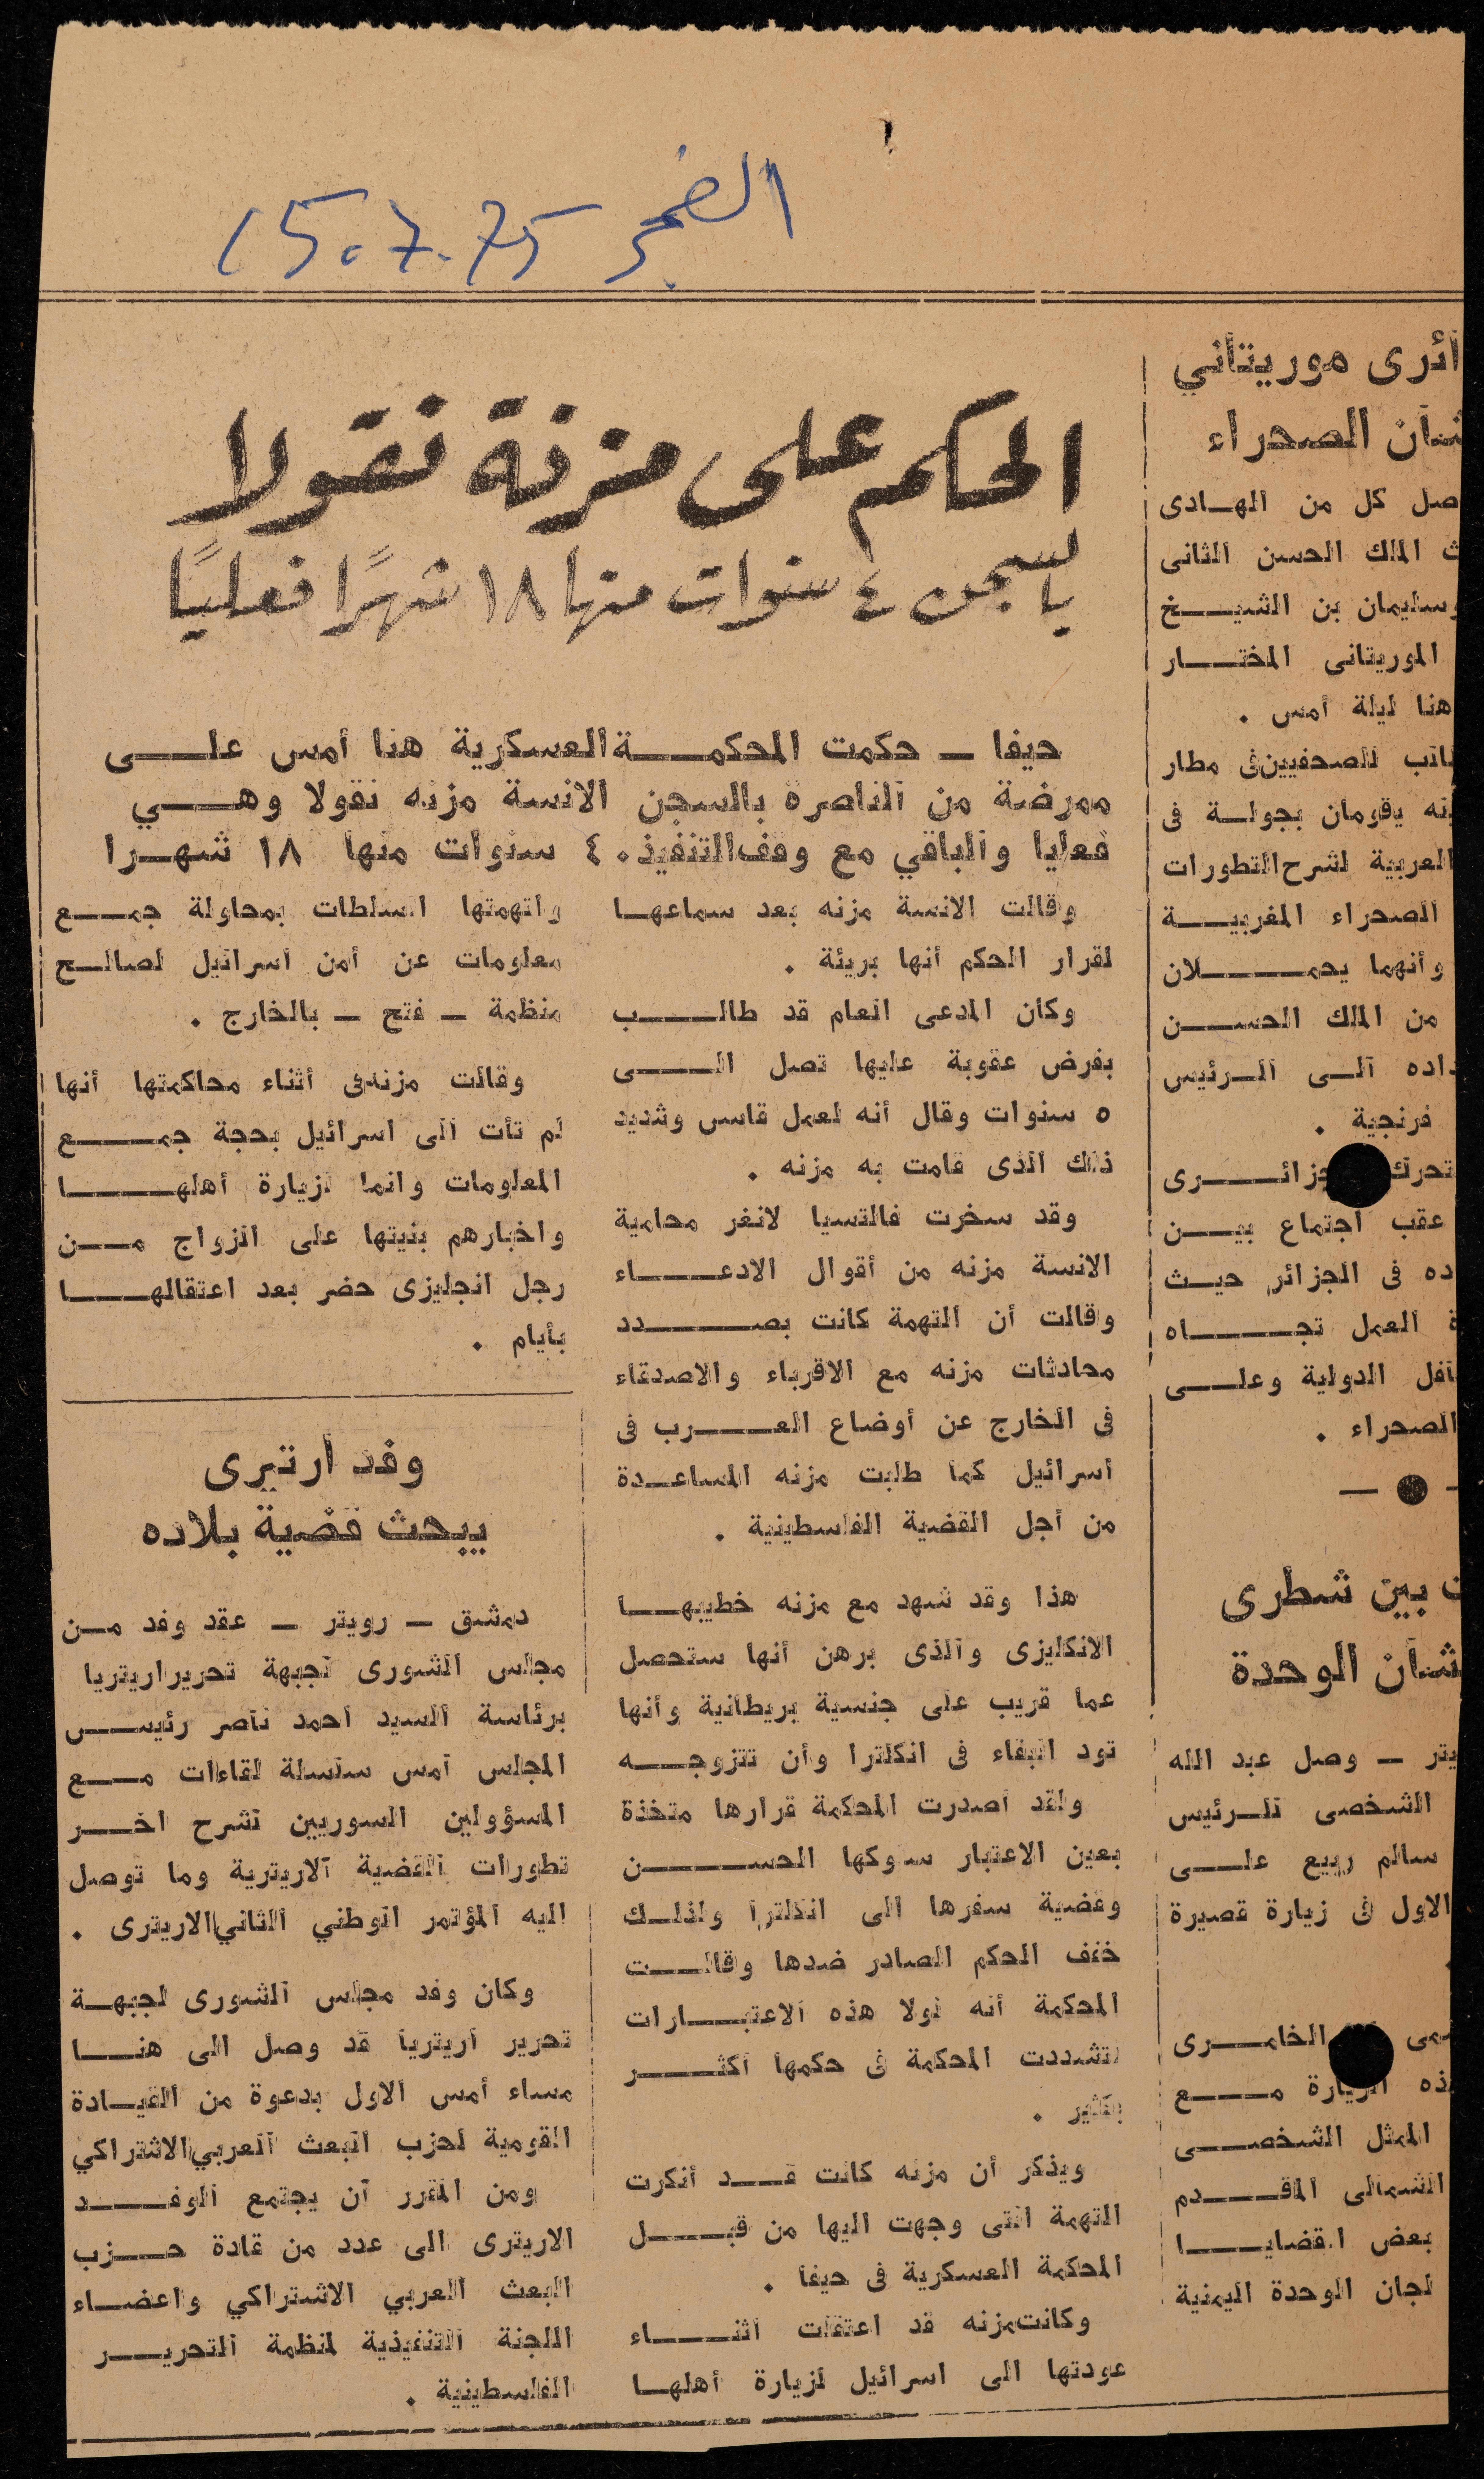 الفجر 15.7.75
ائرى موريتاني
شان الصحراء
صل كل من الهادى
الملك الحسن الثانى
وسليمان بن الشيخ
الموريتانى المختار
هنا ليلة أمس .
للصحفيين فى مطار
يقومان بجولة فى
العربية لشرح التطورات
الصحراء المغربية
وأنهما يحملان
من الملك الحسن
داده الى الرئيس
فرنجية .
تحرك جزائرى
عقب اجتماع بين
ده فى الجزائر حيث
العمل تجاه
افل الدولية وعلى
الصحراء .
بين شطرى
شان الوحدة
يتر – وصل عبد الله
الشخصى للرئيس
سالم ربيع على
الاول فى زيارة قصيرة
الخامرى
الزيارة مع
الممثل الشخصى
الشمالى المقدم
بعض القضايا
لجان الوحدة اليمنية
الحكم على مزنة نقولا
بالسجن ٤ سنوات منها ١٨ شهرًا فعليًا
حيفا – حكمت المحكمة العسكرية هنا أمس على
ممرضة من الناصرة بالسجن الانسة مزنه نقولا وهي
فعليا والباقي مع وقف التنفيذ . ٤ سنوات منها ١٨ شهرا
وقالت الانسة مزنه بعد سماعها
لقرار الحكم أنها بريئة .
وكان المدعى العام قد طالب
بفرض عقوبة عليها تصل الى
٥ سنوات وقال أنه لعمل قاس وشديد
ذلك الذى قامت به مزنه .
وقد سخرت فالتسيا لانغر محامية
الانسة مزنه من أقوال الادعاء
وقالت أن التهمة كانت بصدد
محادثات مزنه مع الاقرباء والاصدقاء
فى الخارج عن أوضاع العرب فى
اسرائيل كما طلبت مزنه المساعدة
من أجل القضية الفلسطينية .
هذا وقد شهد مع مزنه خطيبها
الانكليزى والذى برهن أنها ستحصل
عما قريب على جنسية بريطانية وأنها
تود البقاء فى انكلترا وأن تتزوجه
ولقد اصدرت المحكمة قرارها متخذة
بعين الاعتبار سوكها الحسن
وقضية سفرها الى انكلترا ولذلك
خفف الحكم الصادر ضدها وقالت
المحكمة أنه لولا هذه الاعتبارات
لتشددت المحكمة فى حكمها أكثر
بكثير .
ويذكر أن مزنه كانت قد أنكرت
التهمة التى وجهت اليها من قبل
المحكمة العسكرية فى حيفا .
وكانت مزنه قد اعتقلت اثناء
عودتها الى اسرائيل لزيارة أهلها
واتهمتها السلطات بمحاولة جمع
معلومات عن أمن اسرائيل لصالح
منظمة – فتح – بالخارج .
وقالت مزنه فى أثناء محاكمتها أنها
لم تأت الى اسرائيل بحجة جمع
المعلومات وانما لزيارة أهلها
واخبارهم بنيتها على الزواج من
رجل انجليزى حضر بعد اعتقالها
بأيام .
وفد ارتيرى
يبحث قضية بلاده
دمشق – رويتر – عقد وفد من
مجلس الشورى لجبهة تحرير اريتريا
برئاسة السيد احمد ناصر رئيس
المجلس أمس سلسلة لقاءات مع
المسؤولين السوريين لشرح اخر
تطورات القضية الاريترية وما توصل
اليه المؤتمر الوطني الثاني الاريترى .
وكان وفد مجلس الشورى لجبهة
تحرير اريتريا قد وصل الى هنا
مساء أمس الاول بدعوة من القيادة
القومية لحزب البعث العربي الاشتراكي
ومن المقرر أن يجتمع الوفد
الاريترى الى عدد من قادة حزب
البعث العربي الاشتراكي واعضاء
اللجنة التنفيذية لمنظمة التحرير
الفلسطينية .